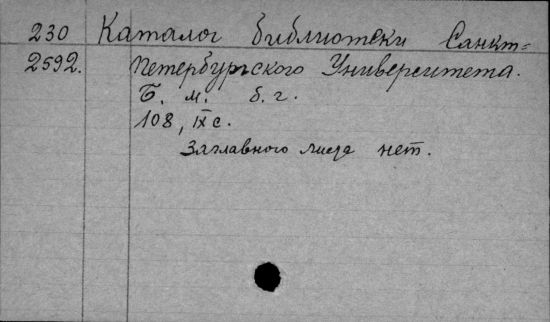 230 Каталог библиотеки Санкт=
2592. Петербургского Университета.
Б. м. б. г.
108, IX с.
Заглавного листа нет.